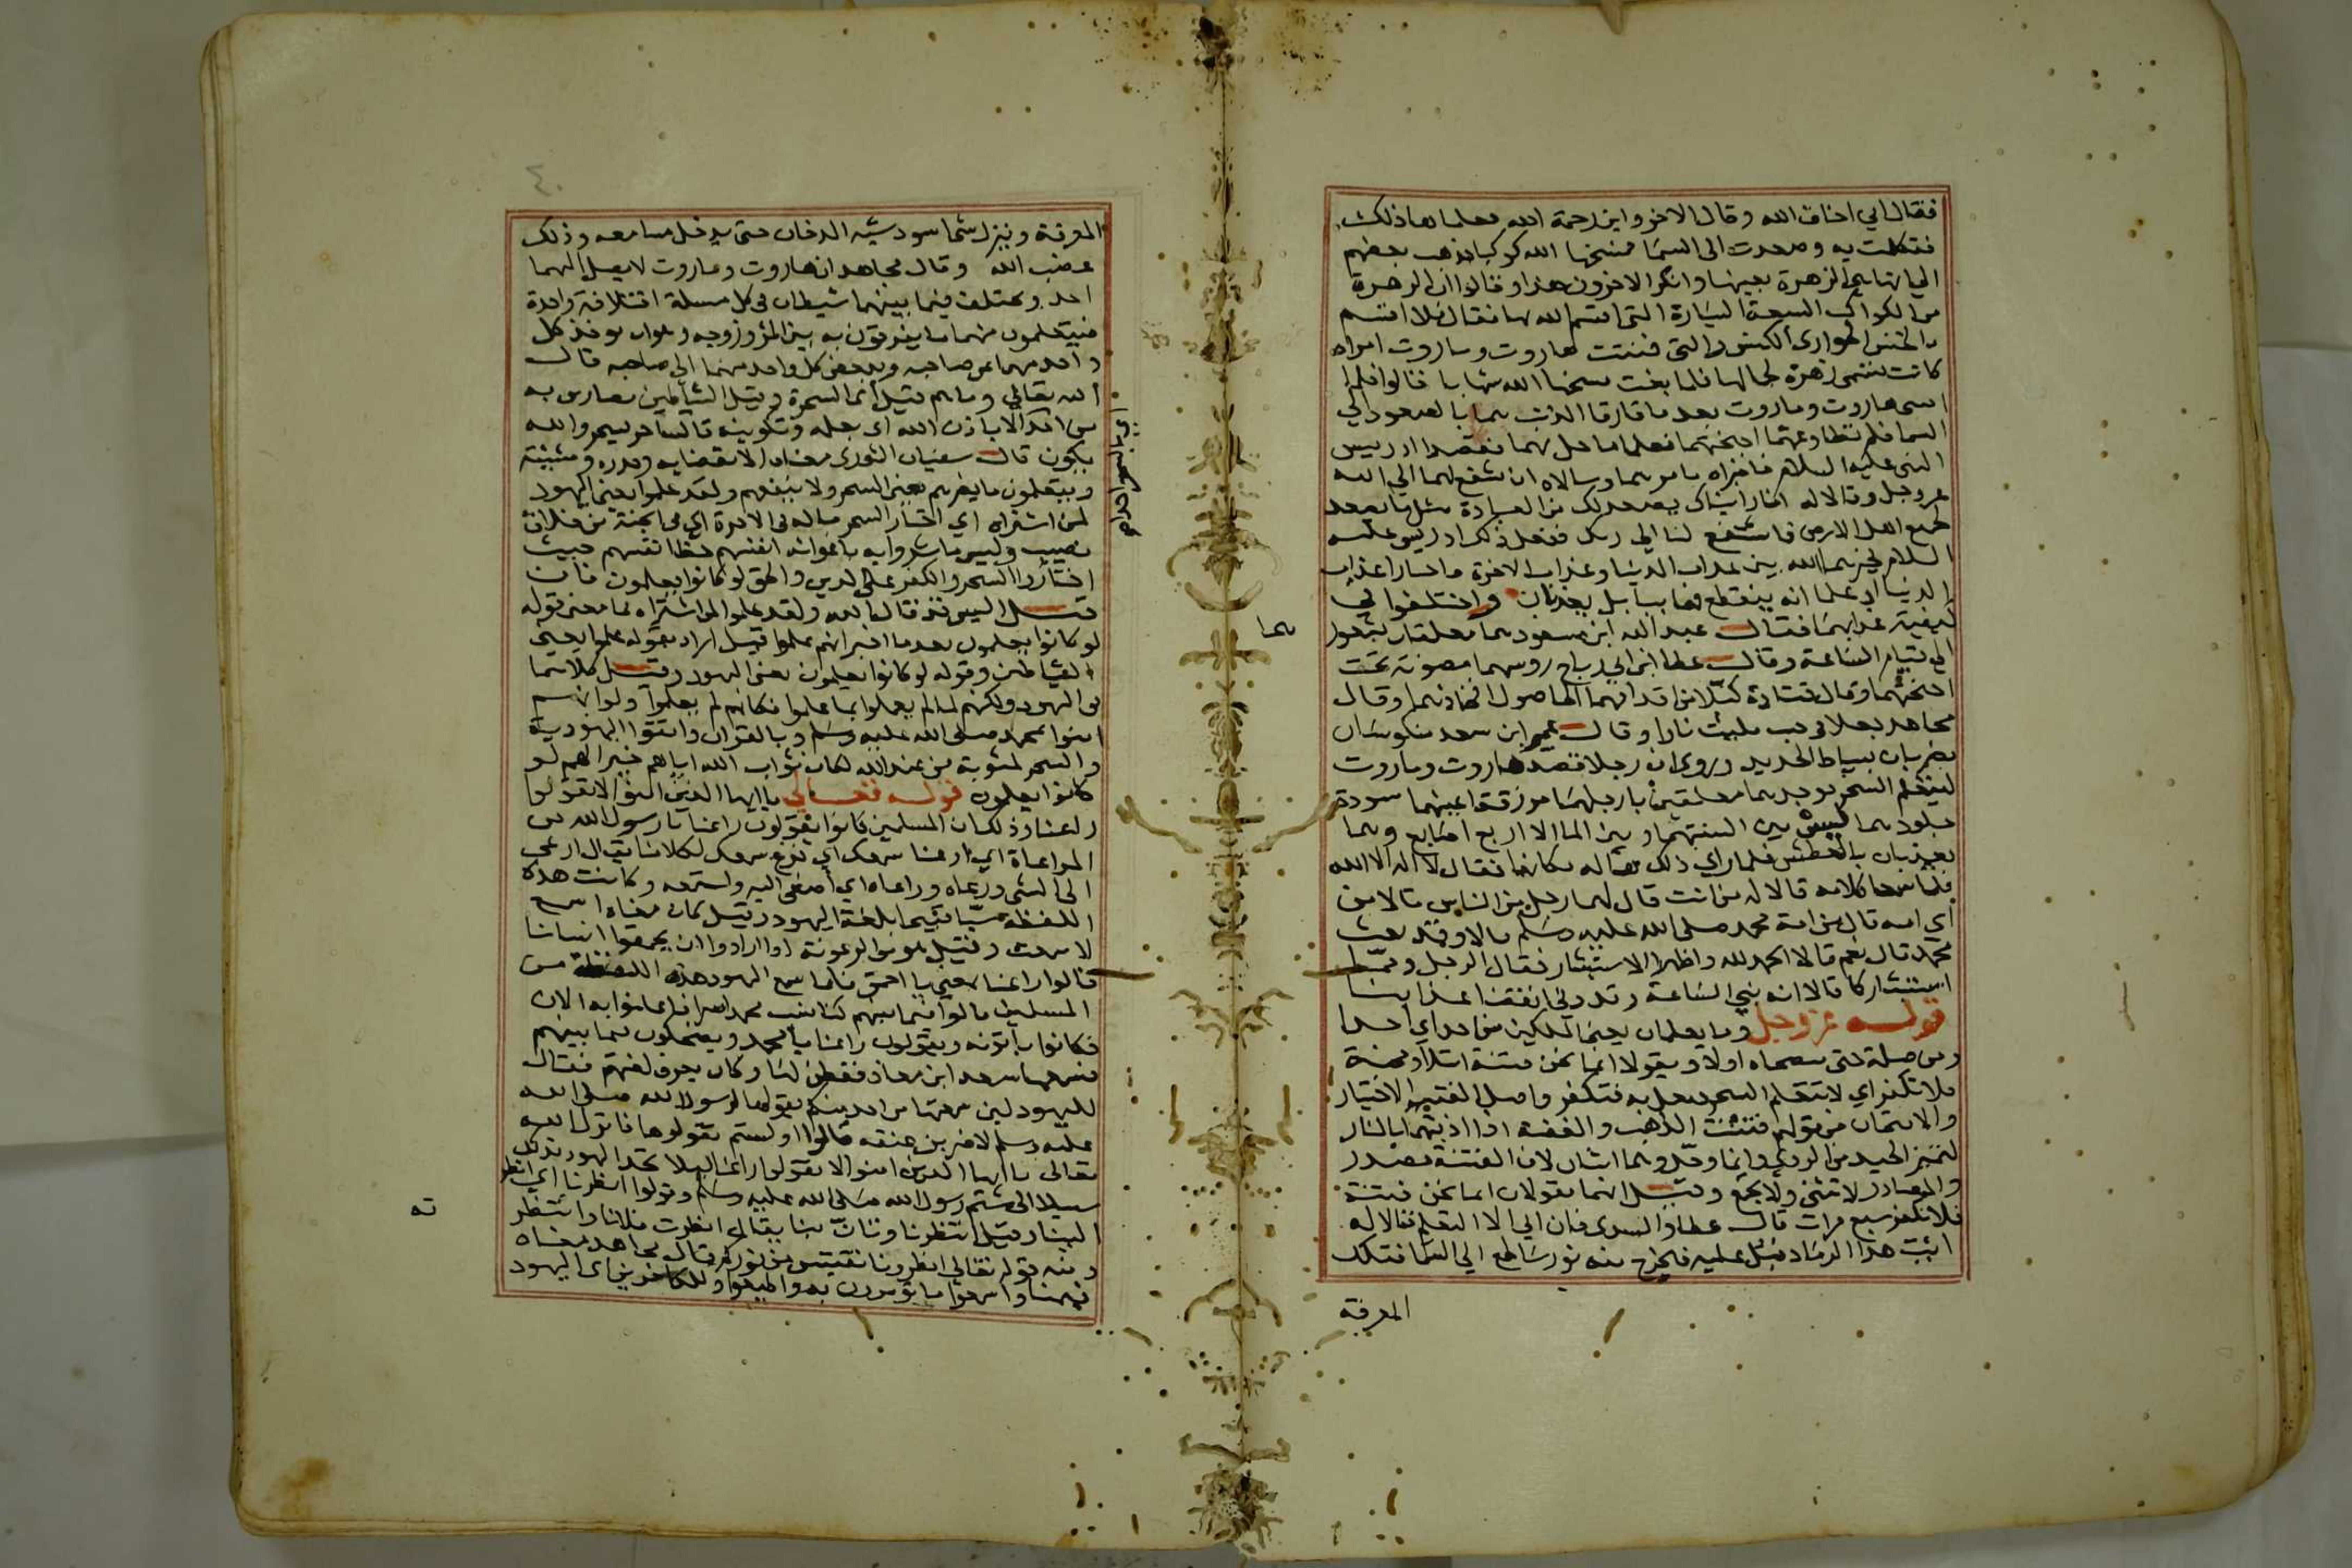 فقال اني اخاف الله وقال الاخر واين رحمة الله فعلماها ذلك
فتكلمت به وصعدت الى السما فمسخها الله كوكبا فذهب بعضهم
الى انها هي الزهرة بعينها وانكر الاخرون هذا وقالوا ان الزهرة
من الكواكب السبعة السيارة التي اقسم الله بها فقال فلا اقسم
بالخنس الجواري الكنس والتي فتنت هاروت وماروت امراه
كانت تسمى زهرة لجمالها فلما بغت مسخها الله شهابا قالوا فلما
امسى هاروت وماروت بعد ما قارفا الذنب هما بالصعود الى
السما فلم تطاوعهما اجنحتهما فعلما ما حل بهما فقصدا ادريس
النبي عليه السلام فاخبراه بامرهما وسالاه ان يشفع لهما الى الله
عز وجل وقالا له انا رايناك يصعد لك من العبادة مثل ما يصعد
لجميع اهل الارض فاستشفع لنا الى ربك ففعل ذلك ادريس عليه
السلام فخيرهما الله بين عذاب الدنيا وعذاب الاخرة فاختارا عذاب
الدنيا اذ علما انه ينقطع فهما ببابل يعذبان واختلفوا في
كيفية عذابهما فقال عبد الله ابن مسعود هما معلقان بشعورهما
الى قيام الساعة وقال عطا ابن ابي رباح روسهما مصوبة تحت
اجنحتهما وقال قتادة كبلا من اقدامهما الى اصول افخاذهما وقال
مجاهد جعلا في جب مليت نارا وقال عمير ابن سعد منكوسان
يضربان بسياط الحديد وروي ان رجلا قصد هاروت وماروت
ليتعلم السحر فوجدهما معلقين بارجلهما مزرقة اعينهما سودة
جلودهما ليس بين السنتهما وبين الما الا اربع اصابع وهما
يعذبان بالعطش فلما راى ذلك هاله مكانهما فقال لا اله الا الله
فلما سمعا كلامه قالا له من انت قال لهما رجل من الناس قالا من
اي امه قال من امة محمد صلى الله عليه وسلم قالا وقد بعث
محمد قال نعم قالا الحمد لله واظهرا الاستبشار فقال الرجل ومم
استبشاركما قالا انه نبي الساعة وقد دنى انقضا عذابنا
قوله عز وجل وما يعلمان يعني الملكين من احد اي احدا
ومن صلة حتى ينصحاه اولا ويقولا انما نحن فتنة ابتلا ومحنة
فلا تكفر اي لا تتعلم السحر فتعمل به فتكفر واصل الفتنة الاختبار
والامتحان من قولهم فتنت الذهب والفضة اذا اذبتهما بالنار
لتميز الجيد من الردي وانما وحد وهما اثنان لان الفتنة مصدر
والمصادر لا تثنى ولا تجمع وقيل انهما يقولان انما نحن فتنة
فلا تكفر سبع مرات قال عطا والسدي فان ابى الا التعلم قالا له
ائت هذا الرماد فبل عليه فيخرج منه نور ساطع الى السما فتلك
المعرفة
٤٠
المعرفة وينزل شي اسود شبه الدخان حتى يدخل مسامعه وذلك
غضب الله وقال مجاهد ان هاروت وماروت لا يصل اليهما
احد ويختلف فيما بينهما شيطان في كل مسلة اختلافة واحدة
فيتعلمون منهما ما يفرقون به بين المرء وزوجه وهو ان يوخذ كل
واحد منهما عن صاحبه ويبغض كل واحد منهما الى صاحبه قال
الله تعالى وما هم قيل اي السحرة وقيل الشياطين بضارين به
من احد الا باذن الله اي بعلمه وتكوينه فالساحر يسحر والله
يكون قال سفيان الثوري معناه الا بقضايه وقدره ومشيئته
ويتعلمون ما يضرهم يعني السحر ولا ينفعهم ولقد علموا يعني اليهود
لمن اشتراه اي اختار السحر ماله في الاخرة اي في الجنة من خلاق
نصيب ولبيس ما شروا به باعوا به انفسهم حظ انفسهم حيث
اختاروا السحر والكفر على الدين والحق لو كانوا يعلمون فان
قيل اليس قد قال الله ولقد علموا لمن اشتراه فما معنى قوله
لو كانوا يعلمون بعد ما اخبر انهم علموا قيل اراد بقوله علموا يعني
الشياطين وقوله لو كانوا يعلمون يعني اليهود وقيل كلاهما
في اليهود ولكنهم لما لم يعملوا بما علموا فكانهم لم يعلموا ولو انهم
امنوا بمحمد صلى الله عليه وسلم وبالقران واتقوا اليهودية
والسحر لمثوبة من عند الله لكان ثواب الله اياهم خيرا لهم لو
كانوا يعلمون قوله تعالى يا ايها الذين امنوا لا تقولوا
راعنا وذلك ان المسلمين كانوا يقولون راعنا يا رسول الله من
المراعاة اي ارعنا سمعك اي فرغ سمعك لكلامنا يقال ارعى
الى الشي ورعاه وراعاه اي اصغى اليه واستمعه وكانت هذه
اللفظة سبا قبيحا بلغة اليهود وقيل كان معناه اسمع
لا سمعت وقيل هو من الرعونة اذا ارادوا ان يحمقوا انسانا
قالوا راعنا يعني يا احمق فلما سمع اليهود هذه اللفظة من
المسلمين قالوا فيما بينهم كنا نسب محمدا سرا فاعلنوا به الان
فكانوا ياتونه ويقولون راعنا يا محمد ويضحكون فيما بينهم
فسمعها سعد ابن معاذ ففطن لها وكان يعرف لغتهم فقال
لليهود لين سمعتها من احد منكم يقولها لرسول الله صلى الله
عليه وسلم لاضربن عنقه قالوا اولستم تقولوها فانزل الله
تعالى يا ايها الذين امنوا لا تقولوا راعنا لكيلا تجد اليهود بذلك
سبيلا الى شتم رسول الله صلى الله عليه وسلم وقولوا انظرنا اي انظر
الينا وقيل انتظرنا وتان بنا يقال انظرت فلانا وانتظر
ته
ومنه قوله تعالى انظرونا نقتبس من نوركم وقال مجاهد معناه
فهمنا واسمعوا ما تومرون به واطيعوا وللكافرين اي اليهود